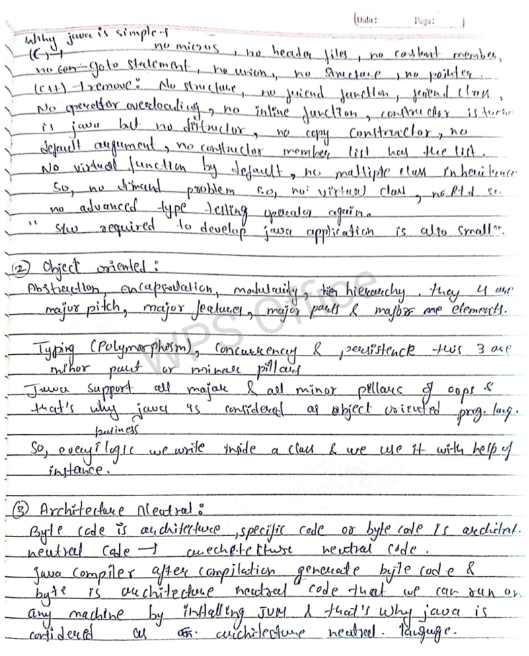 Date: Page:
Why java is simple ?
(C,) → no micros, no header files, no constant member,
no con- goto statement, no union, no structure, no pointer.
(C++) → remove: No structure, no friend function, friend class,
No operator overloading, no inline function, constructor is there
is java but no distructor, no copy constructor, no
default argument, no constructor member list has the list.
No virtual function by default, no maltiple class inheritence
So, no dimand problem so, no virtual class, no
no advanced type testing operator again.
" s/w required to develop java application is also small".
② Object oriented :
Abstraction, encapsulation, modularity, hierarchy. they 4 are
major pitch, major features, major parts & majors me elements.
Typing (Polymorphism), concurrency & persistence this 3 are
minor part or minor pillars
Java support all major & all minor pillars of oops &
that's why java is considered as object oriented prog. lang.
business
So, every logic we write inside a class & we use it with help of
instance.
③ Architecture Neutral :
Byte code is architecture, specific code or byte code is architect.
neutral code → architecture neutral code.
Java compiler after compilation generate byte code &
byte is architecture neutral code that we can run on
any machine by installing JVM & that's why java is
considered as architecture neutral. language.
WPS Office